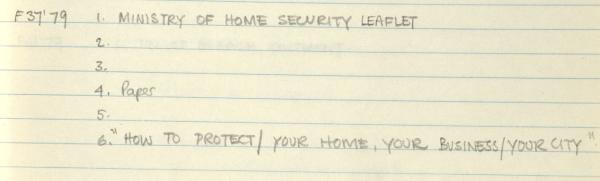 F37'79 1. MINISTRY OF HOME SECURITY LEAFLET
2.
3.
4. Paper
5.
6. "HOW TO PROTECT/ YOUR HOME, YOUR BUSINESS/YOUR CITY".